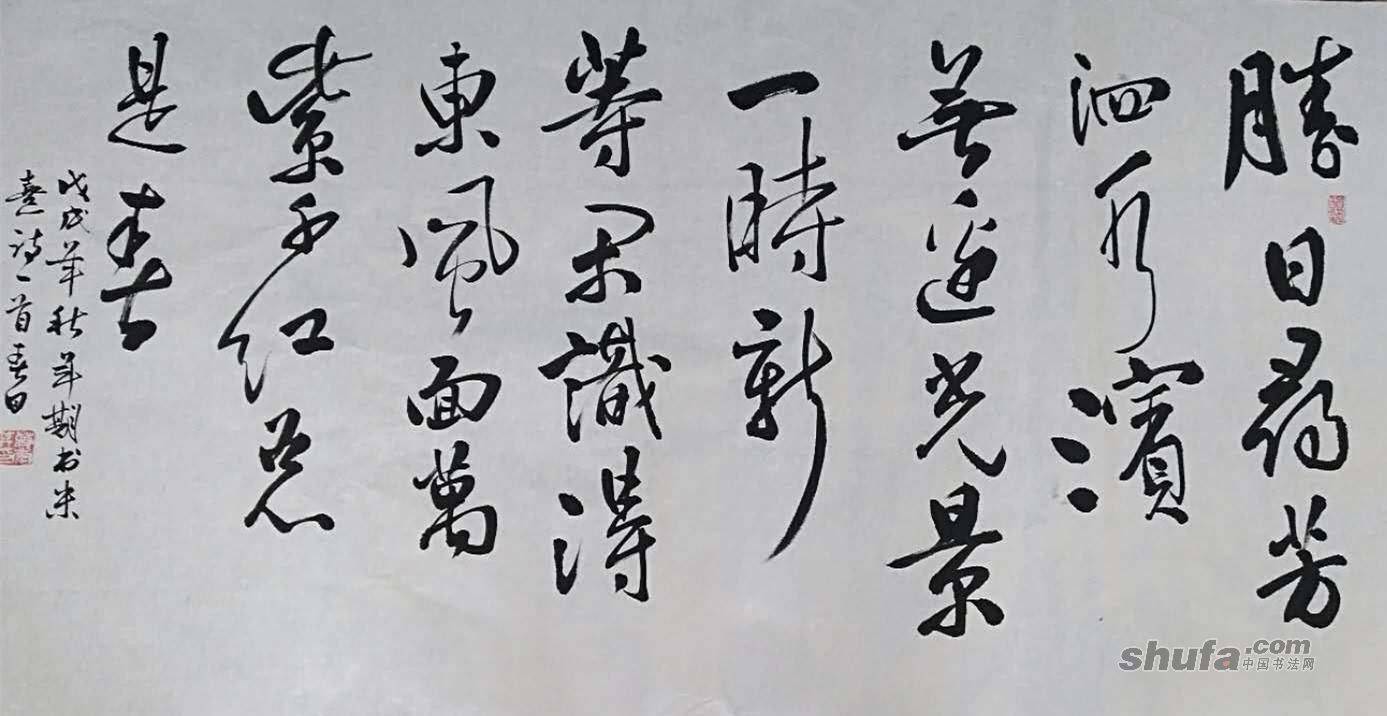 勝日尋芳
泗水濱
無邊光景
一時新
等閑識得
東風面萬
紫千紅总
是春
戊戌年秋年期书朱
熹诗一首春日
shufa.com
中国书法网